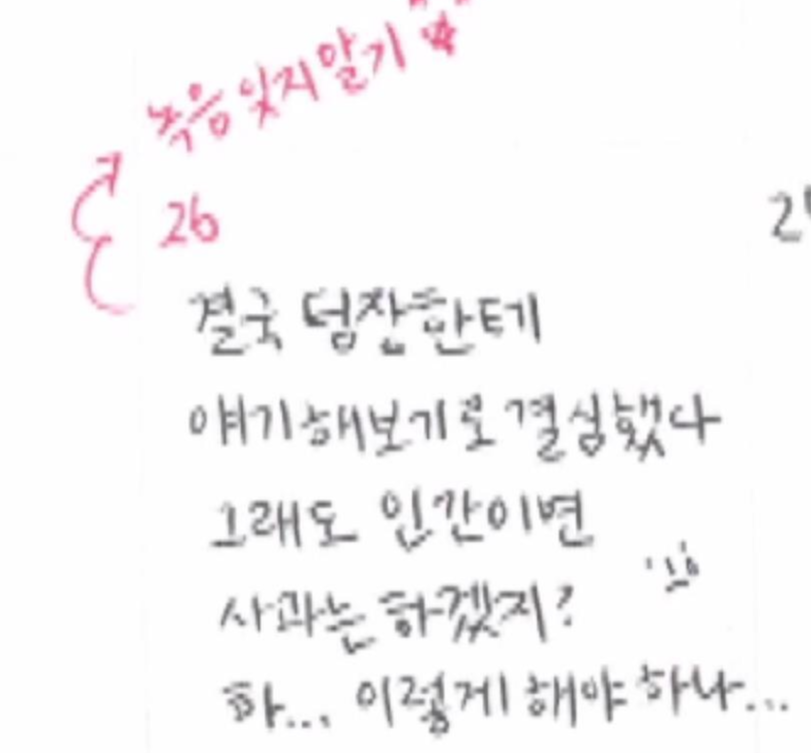 녹음 잊지 말기
26
결국 텀장한테
얘기해보기로 결심했다
그래도 인간이면
사과는 하겠지?
하... 이렇게 해야 하나...